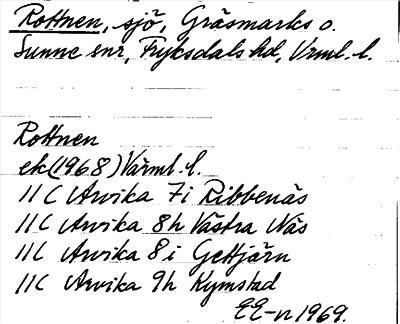 Rottnen, sjö, Gräsmarks o.
Sunne snr, Fryksdals hd, Vrml. l.
Rottnen
ek (1968) Värml. l.
11C Arvika 7i Ribbenäs
11C Arvika 8h Västra Näs
11C Arvika 8i Gettjärn
11C Arvika 9h Kymstad
EE-n 1969.